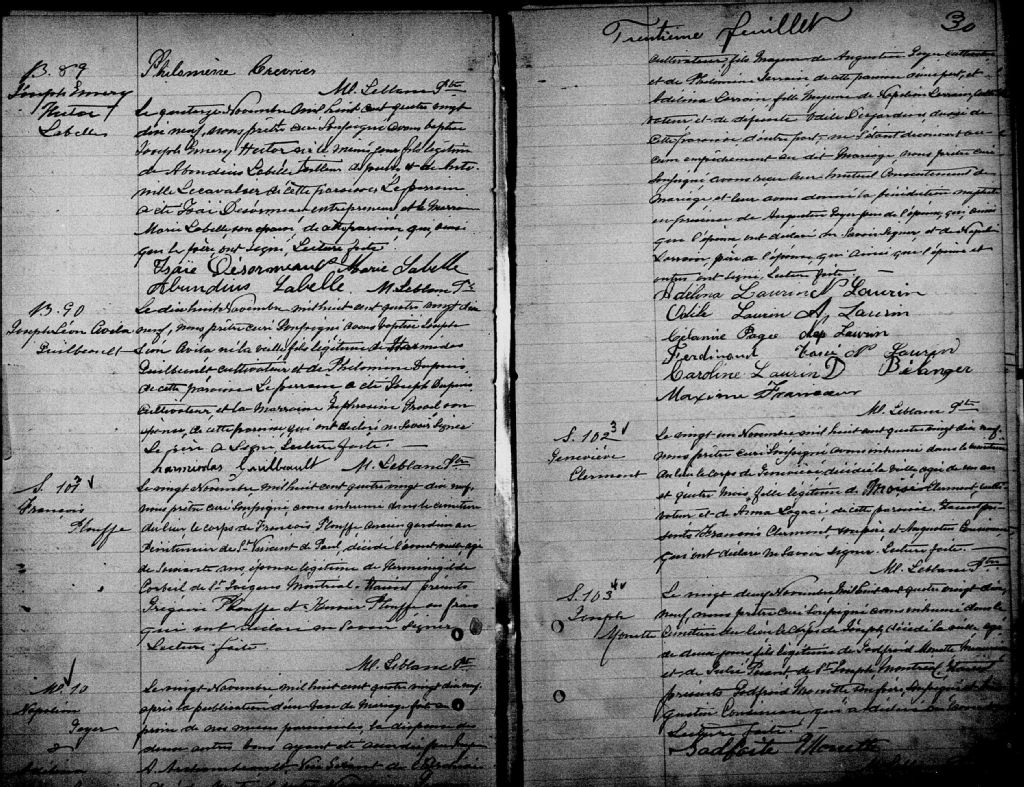 Philomène Crevier
M. Leblanc Ptre
B. 89
Joseph Emery
Hector
Labelle
Le quatorze Novembre mil huit cent quatre vingt
dix neuf, nous prêtre curé soussigné avons baptisé
Joseph Emery Hector né le même jour fils légitime
de Abondius Labelle tailleur de pierres et de
Lecavalier de cette paroisse. Le parrain
a été Isaïe Désormeau entrepreneur et la marraine
Marie Labelle son épouse, de cette paroisse qui, ainsi
que le père, ont signé. Lecture faite.
Isaïe Désormeau Marie Labelle
Abundius Labelle. M. Leblanc Ptre
B. 90
Joseph Léon Avila
Guilbeault
Le dix huit Novembre mil huit cent quatre vingt dix
neuf, nous prêtre curé soussigné avons baptisé Joseph
Léon Avila né la veille fils légitime de Harmidas
Guilbeault cultivateur et de Philomène Dupuis
de cette paroisse. Le parrain a été Joseph Dupuis
cultivateur et la marraine Euphrosine son
épouse, de cette paroisse, qui ont déclaré ne savoir signer
Le père a signé. Lecture faite.
Guilbault M. Leblanc Ptre
S. 101
François
Plouffe
Le vingt Novembre mil huit cent quatre vingt dix neuf,
nous prêtre curé soussigné, avons inhumé dans le cimetière
du lieu, le corps de François Plouffe ancien gardien au
Pénitencier de St Vincent de Paul, décédé l'avant veille agé
de soixante ans, époux légitime de Herménégilde
Corbeil de St Jacques Montréal. Etaient présents
Grégoire Plouffe et Plouffe
qui ont déclaré ne savoir signer
Lecture faite.
M. Leblanc Ptre
M. 10
Napoléon
Goyer
&
Adélina
Le vingt Novembre mil huit cent quatre vingt dix neuf,
après la publication d'un ban de mariage fait au
prône de nos messes paroissiales, la dispense des
deux autres bans ayant été accordée par
Trentième feuillet 30
cultivateur, fils majeur de Augustin Goyer cultivateur
et de Philomène Terrain de cette paroisse d'une part, et
Adélina Lorrain, fille mineure de Napoléon Lorrain, culti
vateur et de défunte Odile Desjardins aussi de
cette paroisse, d'autre part, ne s'étant découvert au
cun empêchement au dit mariage, nous prêtre curé
soussigné avons reçu leur mutuel consentement de
mariage et leur avons donné la bénédiction nuptiale
en présence de Augustin Goyer père de l'époux, qui, ainsi
que l'époux ont déclaré ne savoir signer, et de Napoléon
Lorrain père de l'épouse, qui ainsi que l'épouse et
autres ont signé. Lecture faite.
Adélina Laurin N. Laurin
Odile Laurin A, Laurin
Mélanie Pagé Laurin
Ferdinand N Laurin
Caroline Laurin D Bélanger
Maxime
M. Leblanc Ptre
S. 102
Geneviève
Clermont
Le vingt un Novembre mil huit cent quatre vingt dix neuf,
nous prêtre curé soussigné avons inhumé dans le cimetière
du lieu le corps de Geneviève décédée la veille agée de un an
et quatre mois, fille légitime de Moïse Clermont, culti
vateur et de de cette paroisse. Etaient pré
sents François Clermont, et Augustin
qui ont déclaré ne savoir signer. Lecture faite.
M. Leblanc Ptre
S. 103
Joseph
Monette
Le vingt deux Novembre mil huit cent quatre vingt dix
neuf, nous prêtre curé soussigné avons inhumé dans le
cimetière du lieu le corps de Joseph, décédé la veille agé
de deux jours fils légitime de Godfroid Monette
et de Julie de St Joseph, Montréal. Etaient
présents Godfroid Monette son père, soussigné et
qui a déclaré ne savoir
Lecture faite.
Monette